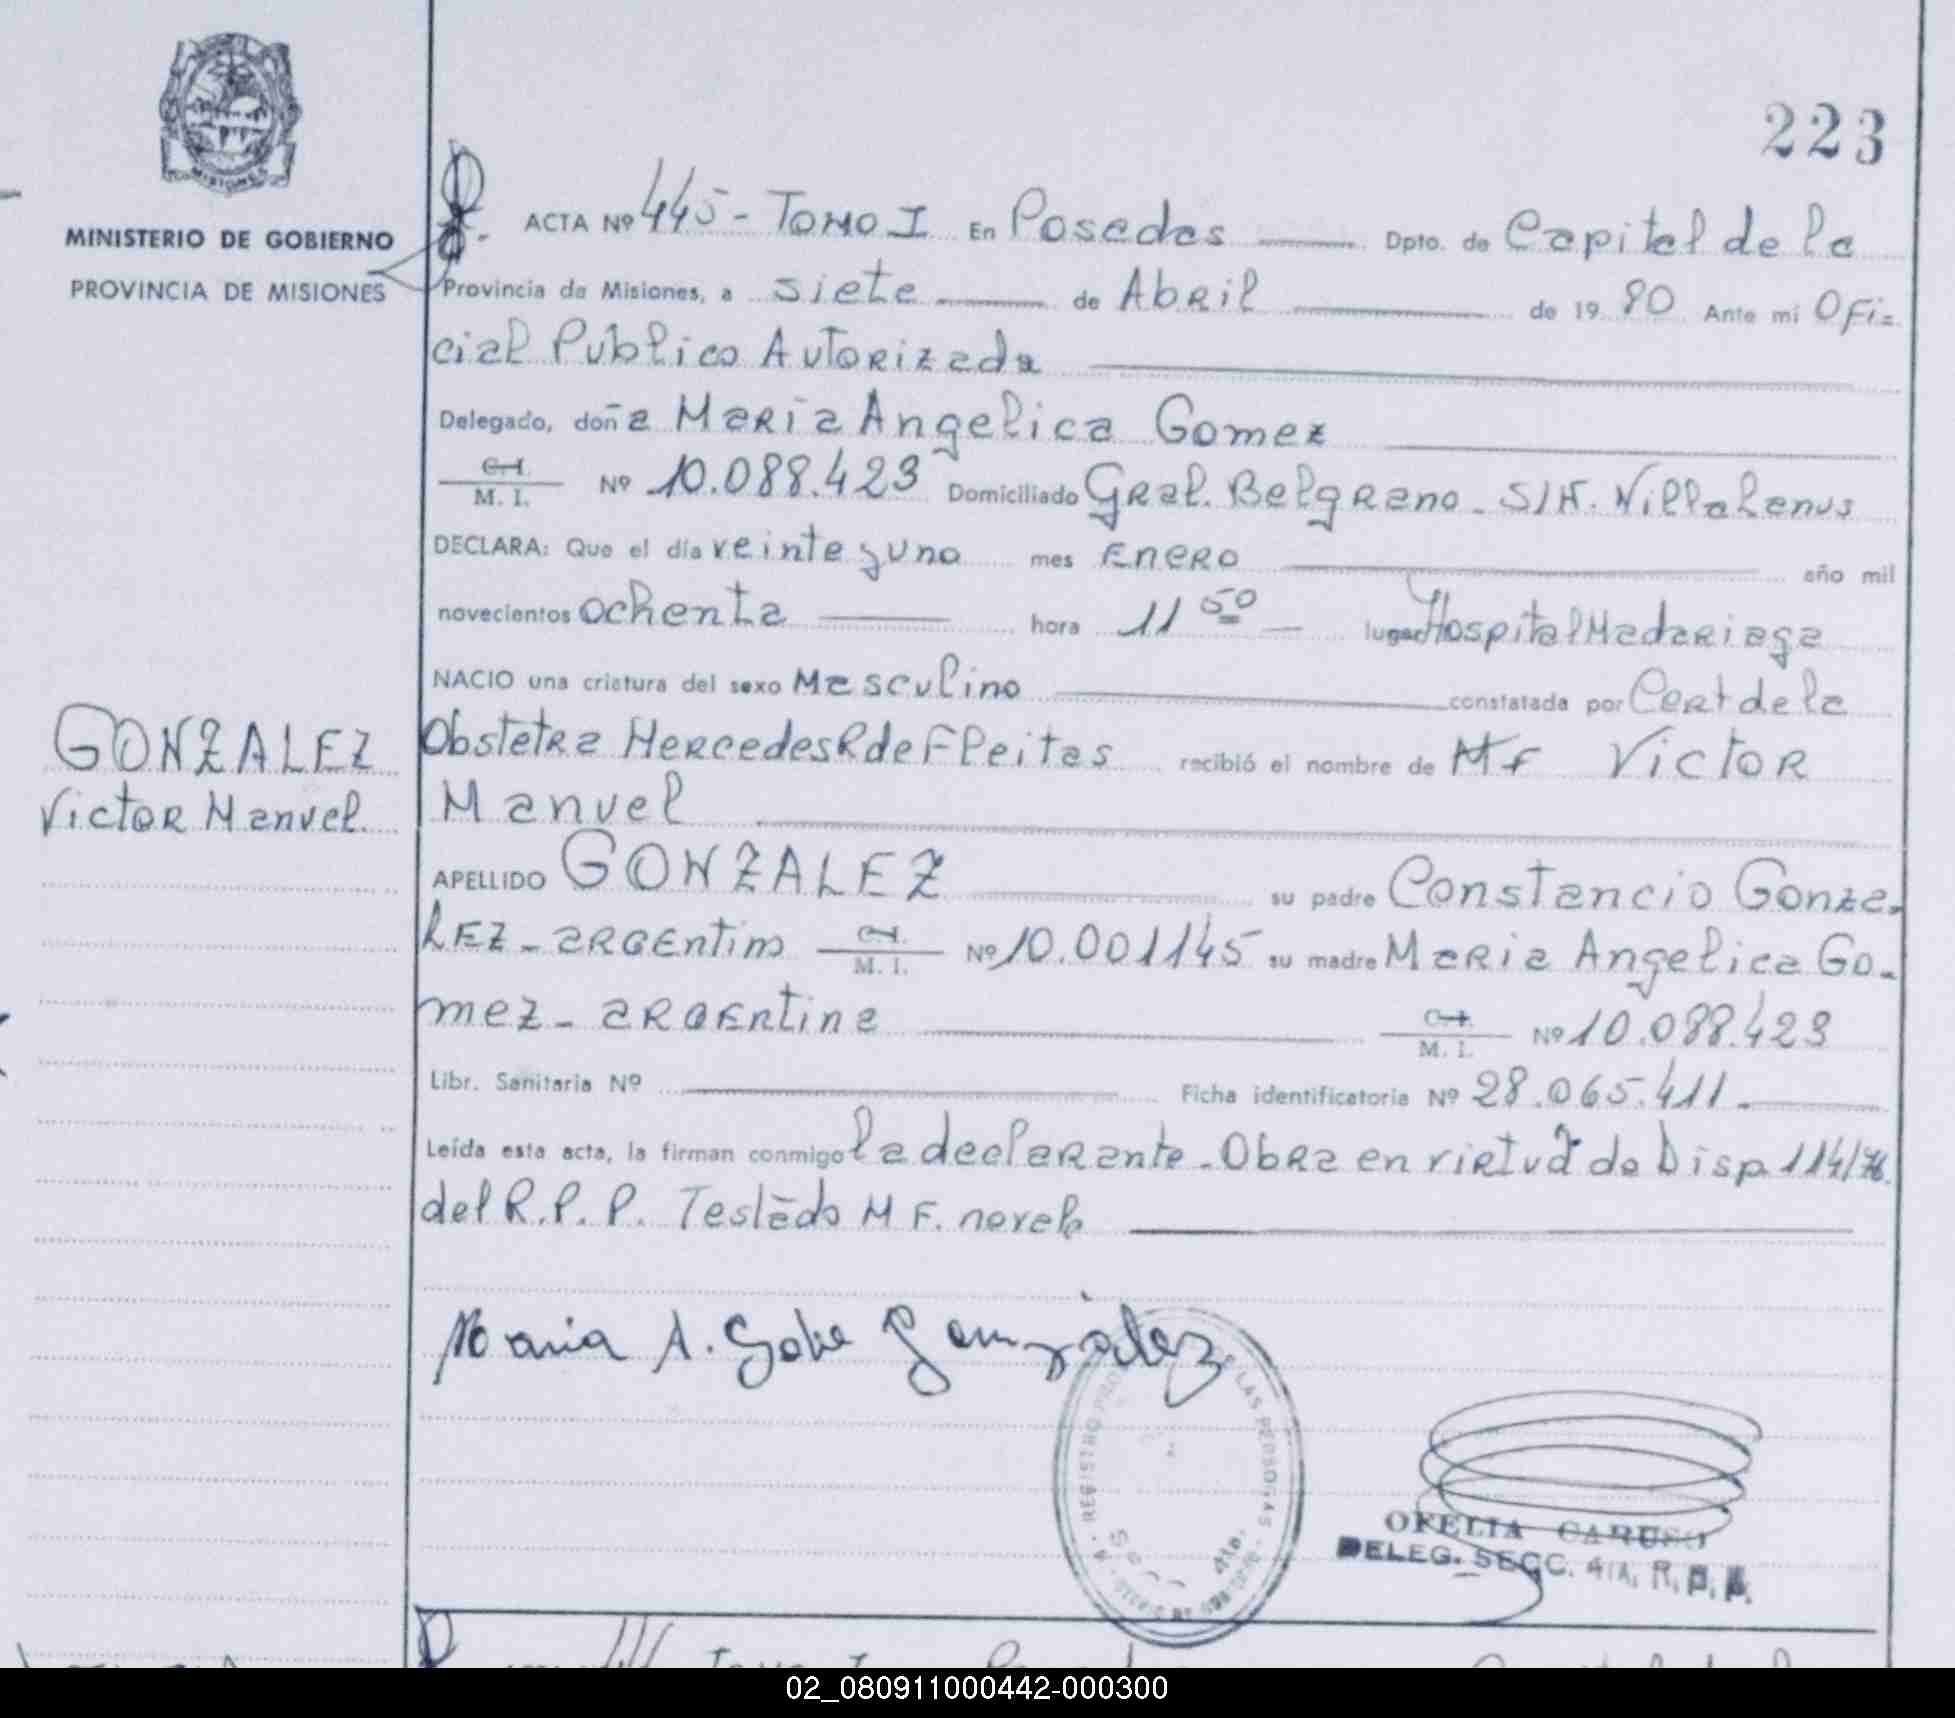 223
MISIONES
MINISTERIO DE GOBIERNO
PROVINCIA DE MISIONES
ACTA Nº 445 - Tomo I En Posadas Dpto. de Capital de la
Provincia de Misiones, a siete de Abril de 19 80 Ante mi Ofi=
cial Publico Autorizada
Delegado, doña Maria Angelica Gomez
C.I.
M. I. Nº 10.088.423 Domiciliado Gral. Belgrano - S/N. Villa Lanus
DECLARA: Que el día veinte y uno mes Enero año mil
novecientos ochenta hora 11 50 lugar Hospital Madariaga
NACIO una criatura del sexo Masculino constatada por Cert de la
GONZALEZ
Victor Manuel.
Obstetra Mercedes R de Fleitas recibió el nombre de MF Victor
Manuel
APELLIDO GONZALEZ su padre Constancio Gonza-
LEZ - argentino C.I. M. I. Nº 10.001145 su madre Maria Angelica Go-
mez - argentina C.I. M. I. Nº 10.088.423
Libr. Sanitaria Nº Ficha identificatoria Nº 28.065.411 -
Leída esta acta, la firman conmigo la declarante - Obra en virtud de Disp 114/76.
del R.P.P. Testado M F. no vale
Maria A. González
REGISTRO DE LAS PERSONAS
OFELIA CARUSO
DELEG. SECC. 4ta. R. P. P.
02_080911000442-000300